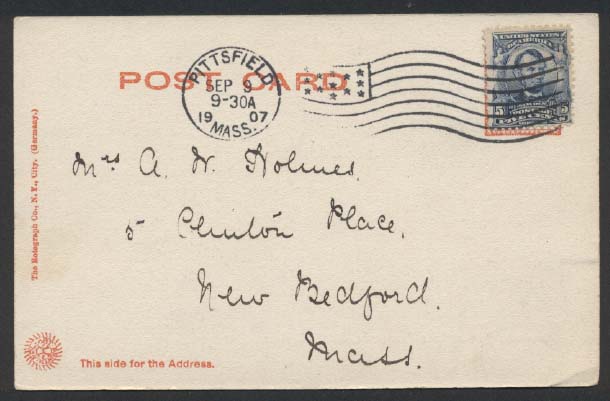 POST CARD
PITTSFIELD
SEP 9
9-30A
19 07
MASS.
UNITED STATES
5 5
Mrs A. W. Holmes.
5 Clinton Place.
New Bedford.
Mass.
The Rotograph Co., N. Y., City. (Germany.)
This side for the Address.